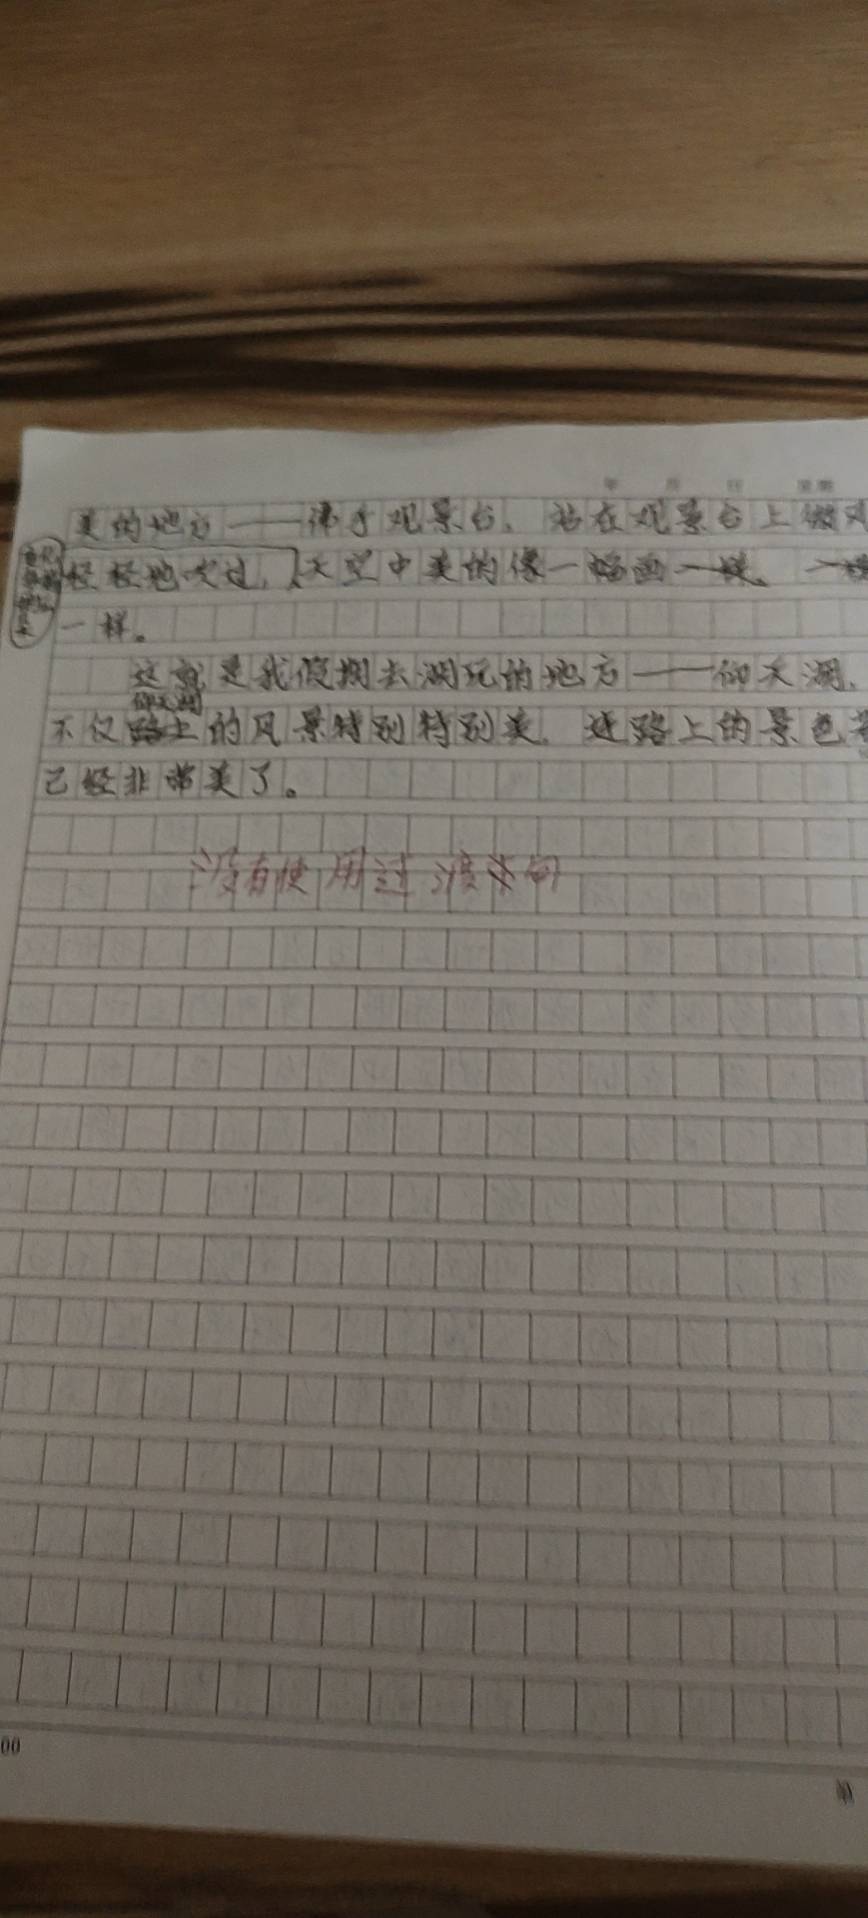 年 月 日 星期
美的地方——佛手观景台、站在观景台上微风
轻轻地吹过,天空中美的像一幅画
一样。
这就是我假期去游玩的地方——仰天湖、
仰天湖
不仅路上的风景特别特别美、连路上的景色都
已经非常美了。
没有使用过渡句
00